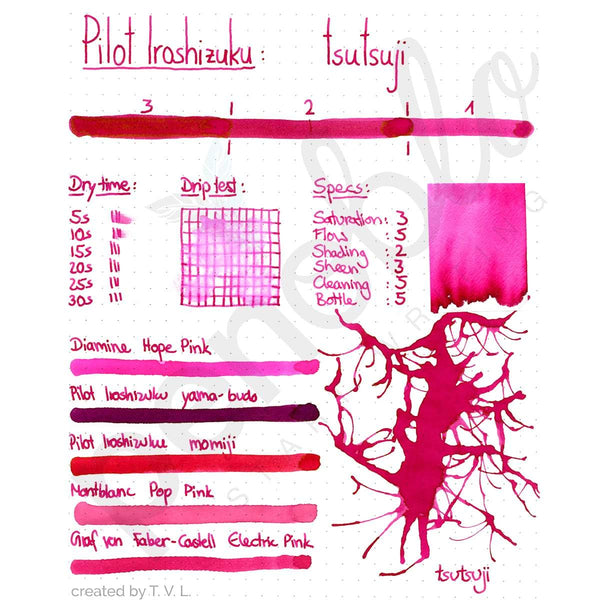 Pilot Iroshizuku: tsutsuji
3 2 1
Dry time: Drip test: Specs:
5s
10s
15s
20s
25s
30s
Saturation: 3
Flow: 5
Shading: 2
Sheen: 3
Cleaning: 5
Bottle: 5
Diamine Hope Pink
Pilot Iroshizuku yama-budo
Pilot Iroshizuku momiji
Montblanc Pop Pink
Graf von Faber-Castell Electric Pink
tsutsuji
created by T. V. L.